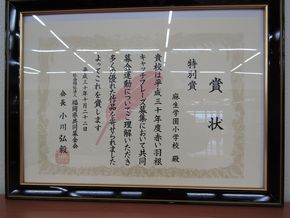 賞状
特別賞
麻生学園小学校 殿
貴校は平成三十年度赤い羽根
キャッチフレーズ募集において共同
募金運動についてご理解いただき
多くの優れた作品を寄せられました
よってこれを賞します
平成三十年十月二十二日
社会福祉法人 福岡県共同募金会
会長 小川弘毅